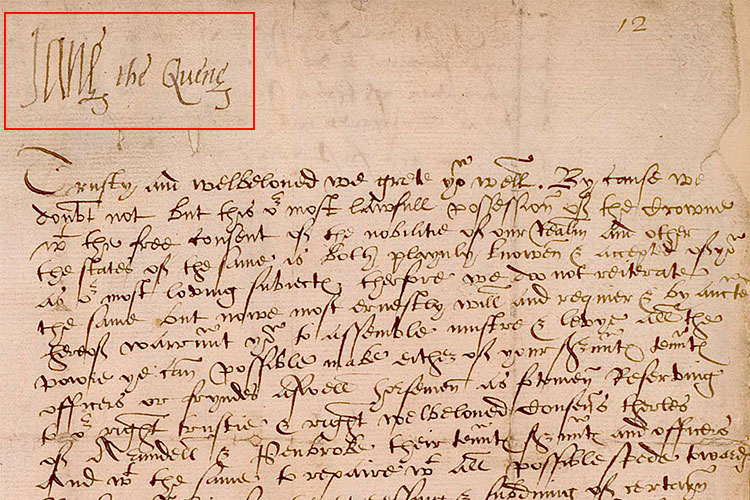 Jane the Quene
12
Trusty and welbeloved we grete yoᵘ well. By cause we
doubt not but this oʳ most lawfull possession of the Crowne
wᵗ the free consent of the nobilitie of our Realm and other
the states of the same is both playnly knowen & accepted of yoᵘ
as oʳ most loving subiectꝭ therfore we do not reiterate
the same but nowe most ernestly will and requier & by auctte
herof warrᵃnt yoᵘ to assemble mustre & levye all the
powre ye can possible make either of your
officers or fryndes aswell horsemen as fotemen Reserving
to oʳ right trustie & right welbeloved Consens therles
of Arundell & Penbroke their and officers
And wᵗ the same to repaire wᵗ all possible spede towardꝭ
of certayn